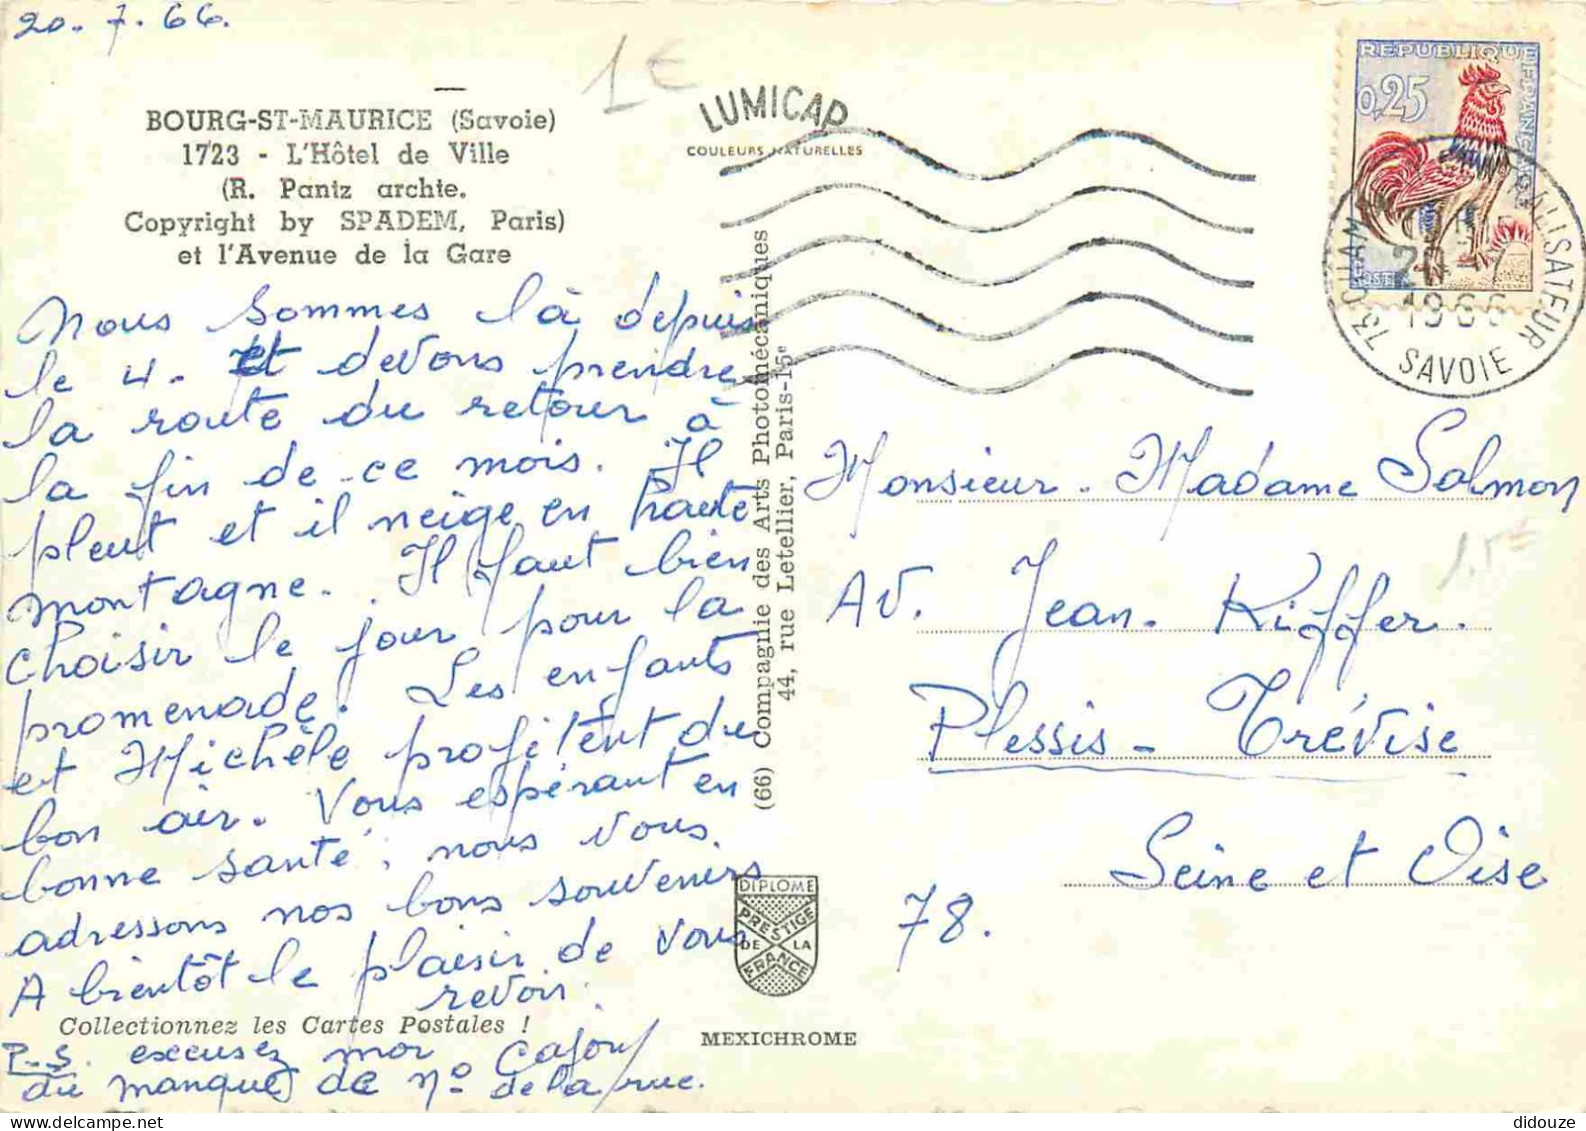 20.7.66.
1€
BOURG-ST-MAURICE (Savoie)
1723 - L'Hôtel de Ville
(R. Pantz archte.
Copyright by SPADEM, Paris)
et l'Avenue de la Gare
LUMICAP
COULEURS NATURELLES
REPUBLIQUE FRANÇAISE
0,25
1966
73 SAVOIE
Nous sommes là depuis
le 4. et devons prendre
la route du retour à
la fin de ce mois. Il
pleut et il neige en haute
montagne. Il faut bien
choisir le jour pour la
promenade. Les enfants
et Michèle profitent du
bon air. Vous espérant en
bonne santé, nous vous
adressons nos bons souvenirs
A bientôt le plaisir de vous
revoir.
Collectionnez les Cartes Postales !
P.S. excusez moi
du manque de Nº de la rue.
(66) Compagnie des Arts Photomécaniques
44, rue Letellier, Paris-15e
DIPLOME
PRESTIGE
DE LA
FRANCE
MEXICHROME
Monsieur. Madame Salmon
1.5€
Av. Jean. Kiffer.
Plessis-Trévise
Seine et Oise
78.
didouze